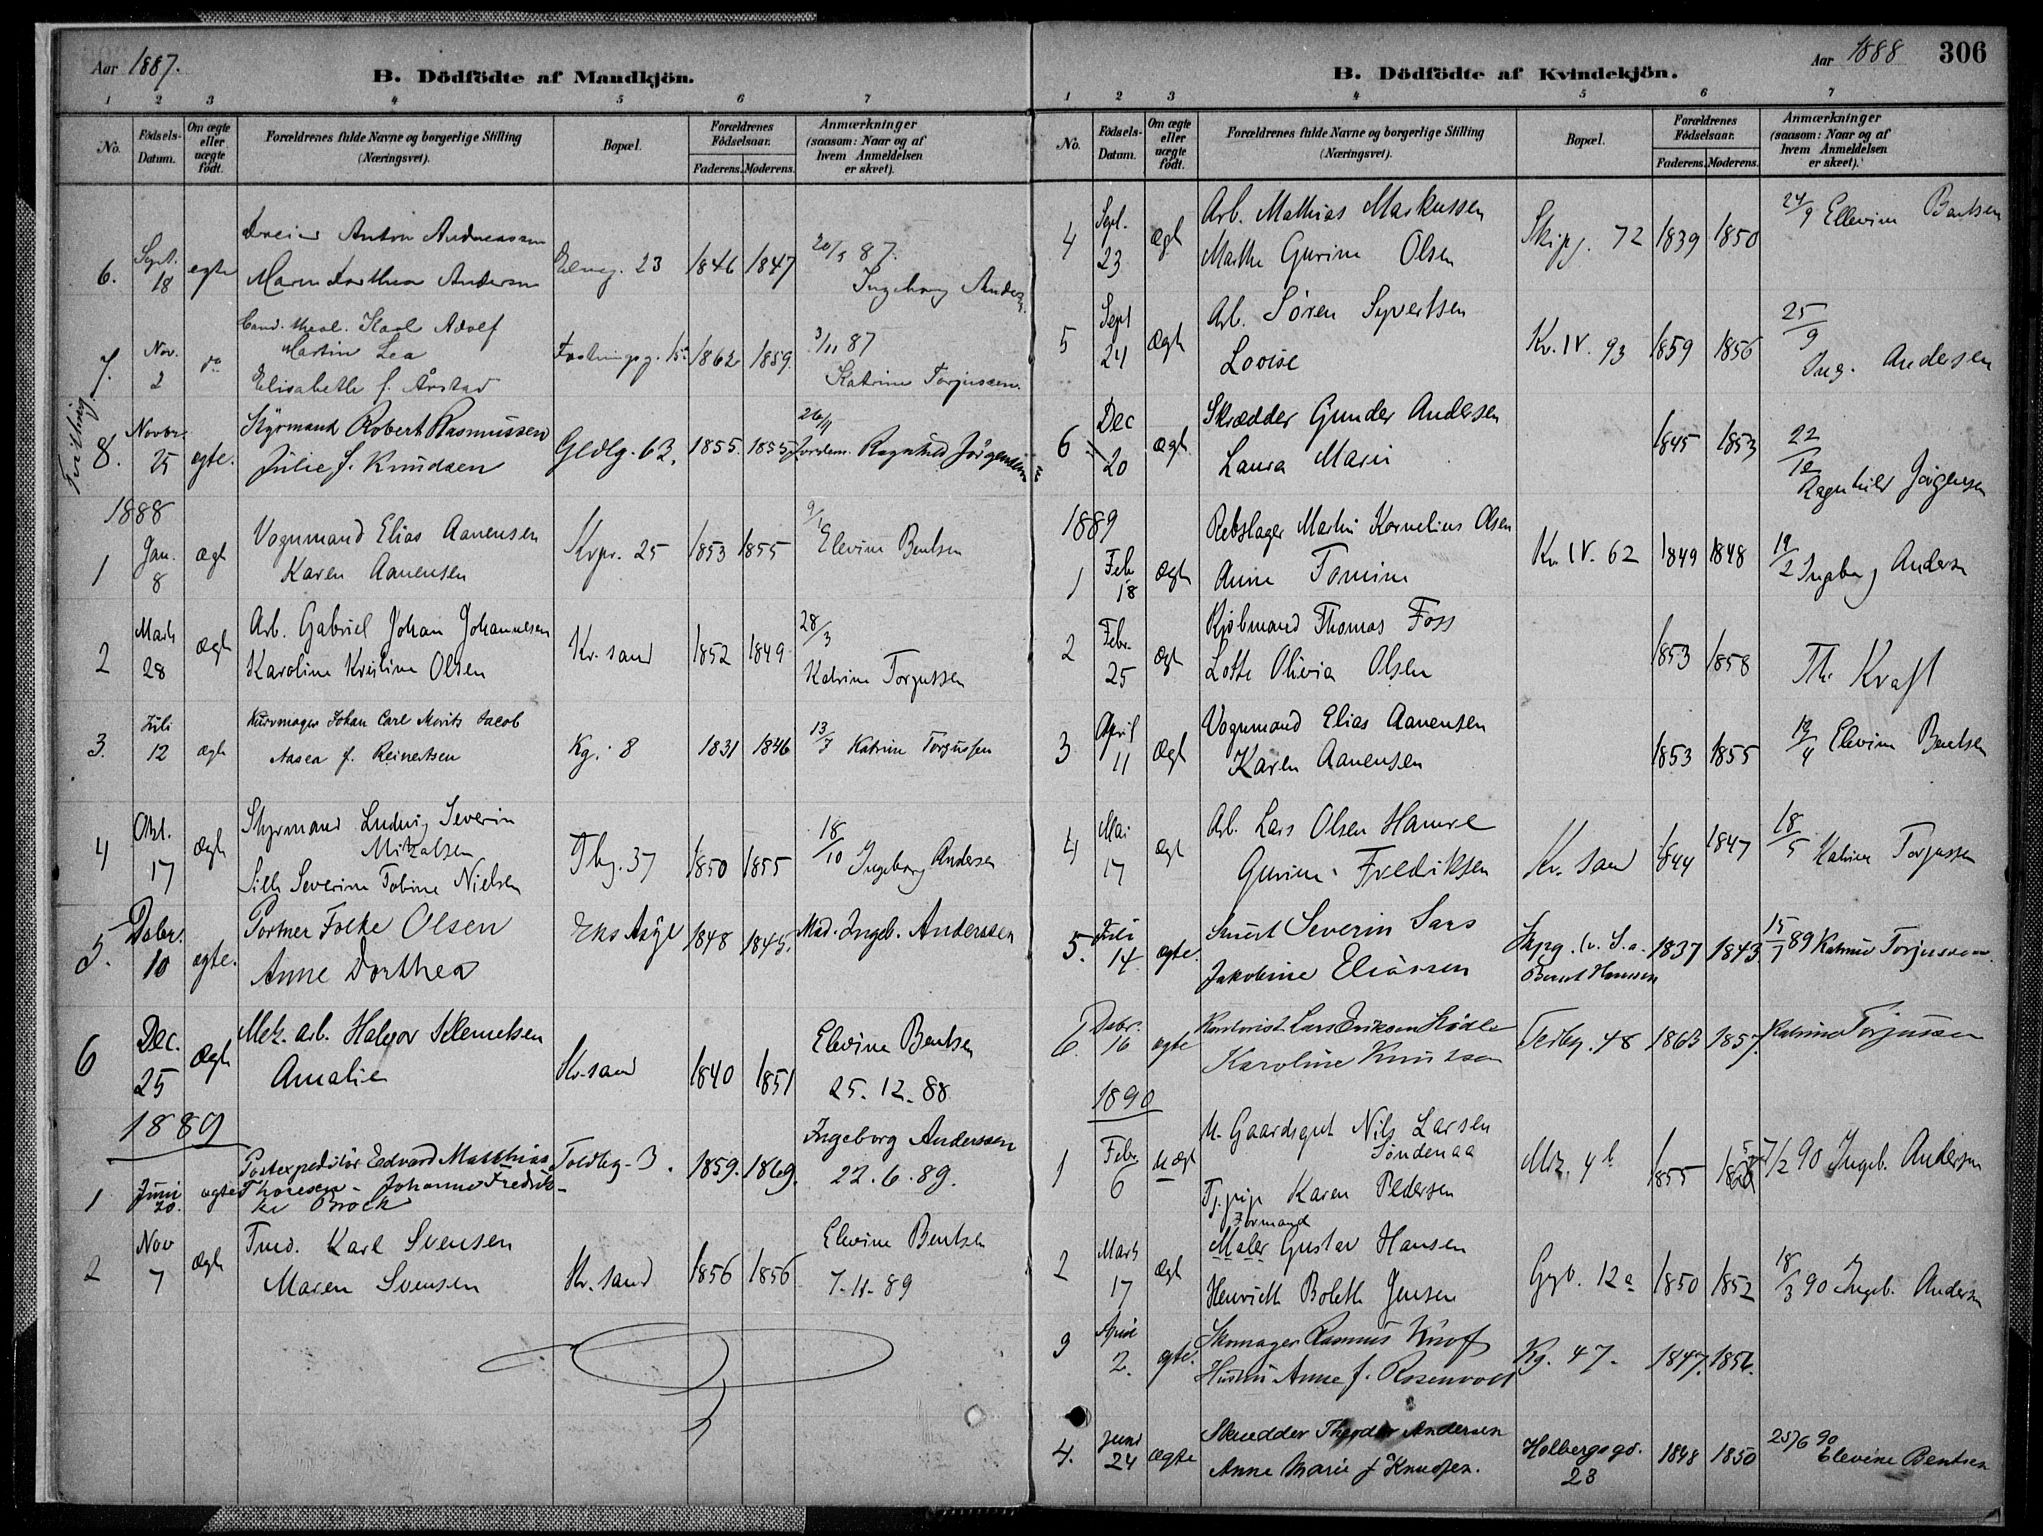 Aar 1887.
B. Dödfödte af Mandkjön.
1 2 3 4 5 6 7
No. Födsels-Datum. Om ægte eller uægte födt. Forældrenes fulde Navne og borgerlige Stilling (Næringsvei). Bopæl. Forældrenes Födselsaar. Faderens. Moderens. Anmærkninger (saasom: Naar og af hvem Anmeldelsen er skeet).
Dreier Anton Andreassen
6. Sept. 18 egte Maren Dorthea Andersen 23 1846 1847 87. Ingeborg Anders.
Cand. theol. Karl Adolf
Martin Lea
7. Nov. 2 do Elisabeth f. Årstad 1862 1859. 3/11 87 Katrine Torjussen.
Tvilling
Styrmand Robert Rasmussen
8. Novbr. 25 egte. Julie f. Knudsen Gldlg. 63. 1855. 1855 26/11 Jordem. Ragnhild Jörgensen
1888
Vognmand Elias Aanensen
1 Jan. 8 Ægt Karen Aanensen 25 1853 1855 9/1 Elevine Bentsen
Arb. Gabriel Johan Johannesen
2 Marts 28 Ægt Karoline Kristine Olsen Kr. sand 1852 1849 28/3 Katrine Torjussen
Kurvmager Johan Carl Morits Jacob
3. Juli 12 ægte Aasea f. Reinertsen Kg. 8 1831 1846 13/7 Katrine Torjussen
Styrmand Ludvig Severin
4 Okt. 17 Ægt Severine Tobine Nielsen Tbg. 37 1850 1855 18/10 Ingeborg Andersen
Portner Folke Olsen
5. Debr. 10 ægte. Anne Dorthea Eks Asyl 1848 1845. Mad. Ingeb. Anderssen
Mek. arb. Halvor Klemetsen
6 Dec. 25 Ægt Amalie Kr. sand 1840 1851 Elevine Bentsen 25. 12. 88
1889
Postexpeditör Edvard Matthias
1 Juni 20. egte Thoresen - Johanne Fredrik-
ke Brock Toldbg. 3. 1859. 1869. Ingeborg Anderssen 22. 6. 89.
Karl Svensen
2 Nov 7 Ægt Maren Svensen Kr. sand 1856 1856 Elevine Bentsen 7-11-89
Aar 1888 306
B. Dödfödte af Kvindekjön.
1 2 3 4 5 6 7
No. Födsels-Datum. Om ægte eller uægte födt. Forældrenes fulde Navne og borgerlige Stilling (Næringsvei). Bopæl. Forældrenes Födselsaar. Faderens. Moderens. Anmærkninger (saasom: Naar og af hvem Anmeldelsen er skeet).
Arb. Mathias Markussen
4 Sept. 23 Ægt Marthe Gurine Olsen Skipg. 72 1839 1850 24/9 Ellevine Bentsen
Arb. Sören Syvertsen
5 Sept 24 Ægt Lovise Kv. IV. 93 1859 1856 25/9 Ing. Andersen
Skrædder Gunder Andersen
6 Dec 20 Ægt Laura Marie 1845 1853 22/12 Ragnhild Jörgensen
1889
Rebslager Martin Kornelius Olsen
1 Feb 18 Ægt Anne Tomine Kv. IV. 62 1849 1848 19/2 Ingeborg Andersen
Kjöbmand Thomas Foss
2 Febr. 25 Ægt Lotte Olivia Olsen 1853 1858 Th. Kraft
Vognmand Elias Aanensen
3 April 11 Ægt Karen Aanensen 1853 1855 12/4 Elevine Bentsen
Arb. Lars Olsen Hamre
4 Mai 17 Ægt Gurine Fredriksen Kr. sand 1844 1847 18/5 Katrine Torjussen
Severin Lars
5. Juli 14 ægte. Jakobine Eliassen Skpg. 1837 1843 15/7 89 Katrine Torjussen.
Bernt Hansen
Kontorist Lars Eriksen Rödle
6. Debr. 16 ægte Karoline Knutsen 48 1863 1857. Katrine Torjussen
1890
U. Gaardsgut Nils Larsen
Söndenaa
1 Febr. 6 uægt Tj. pige Karen Pedersen Mkz. 4b 1855 7/2 90 Ingeb. Andersen
Formand
Maler Gustav Hansen
2 Marts 17 Ægt Henriette Bolette Jensen 12a 1850 1852 18/3 90 Ingeb. Andersen
Skomager Rasmus Knof
3 April 2. egte. Hustru Anne f. Rosenvold Kg. 47. 1847. 1856.
Skrædder Theodor Andersen
4. Juni 24 Ægte Anne Marie f. Knudsen. Holbergsgd. 23 1848 1850 25/6 90 Elevine Bentsen